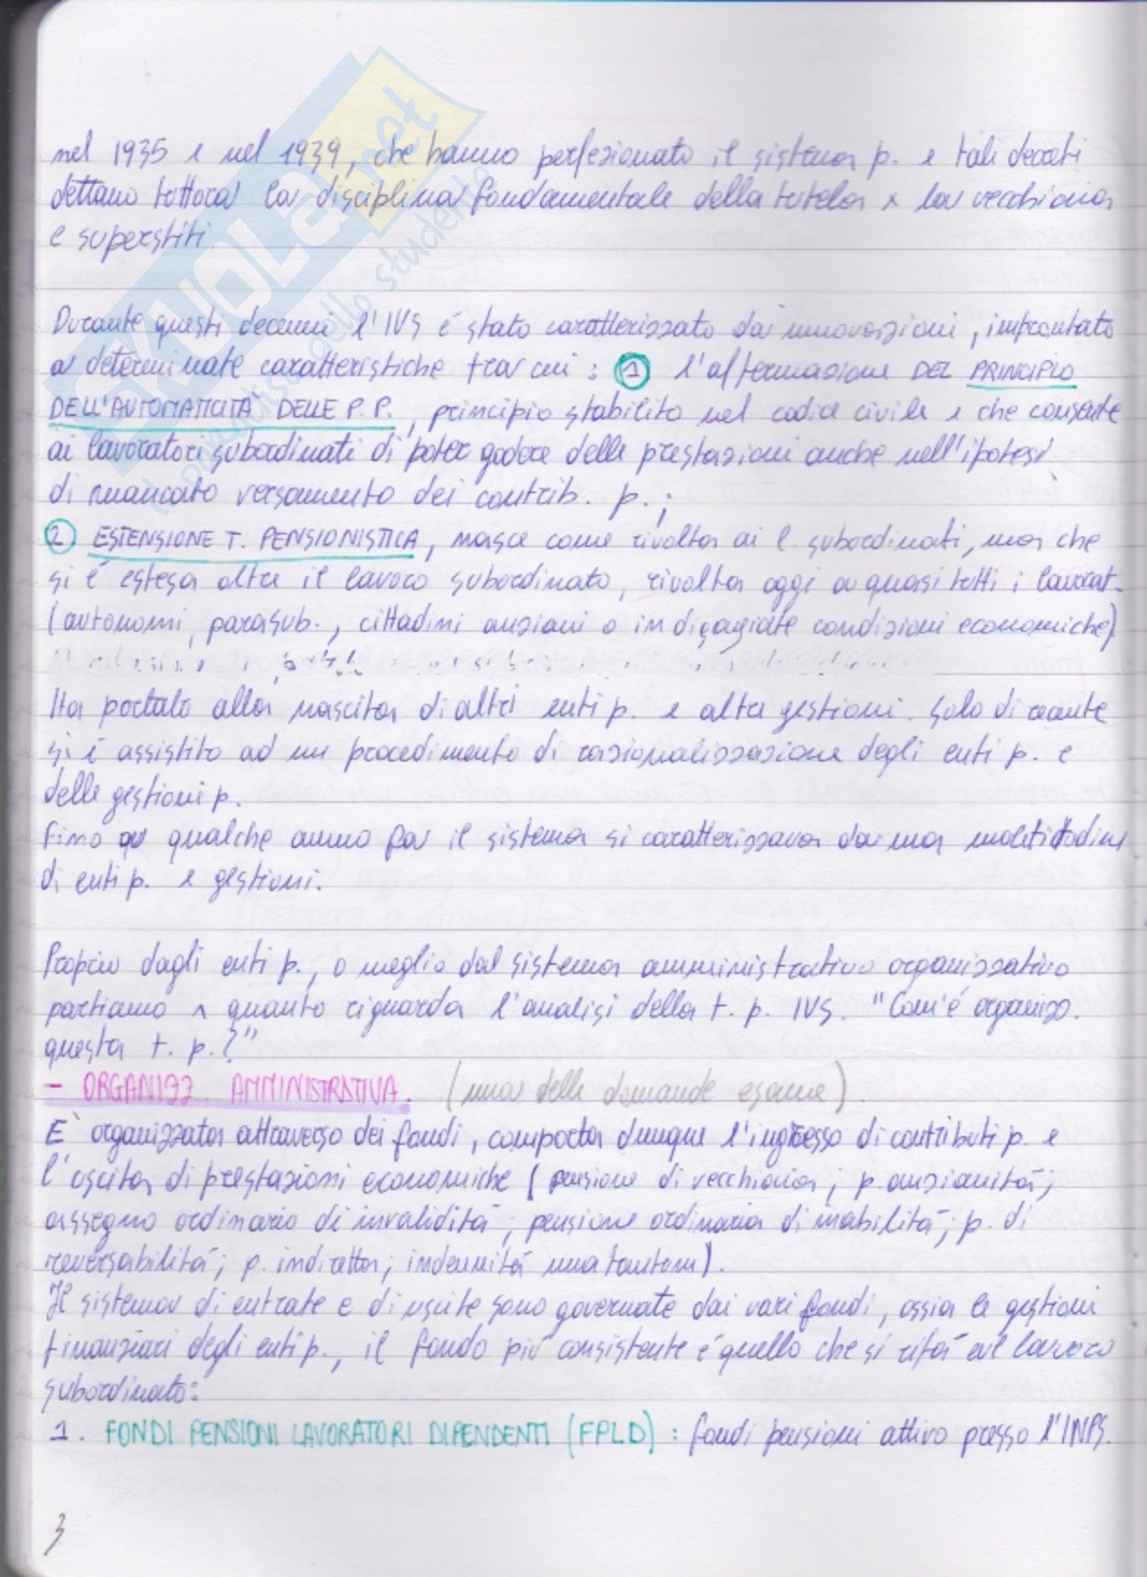 nel 1935 e nel 1939, che hanno perfezionato il sistema p. e tali decreti
dettano tuttora la disciplina fondamentale della tutela x la vecchiaia
e superstiti.
Durante questi decenni l'IVS é stato caratterizzato da innovazioni, improntato
a determinate caratteristiche tra cui: 1 l'affermazione DEL PRINCIPIO
DELL'AUTOMATICITÀ DELLE P.P., principio stabilito nel codice civile e che consente
ai lavoratori subordinati di poter godere delle prestazioni anche nell'ipotesi
di mancato versamento dei contrib. p.;
2 ESTENSIONE T. PENSIONISTICA, nasce come rivolta ai l. subordinati, ma che
si é estesa oltre il lavoro subordinato, rivolta oggi a quasi tutti i lavorat.
(autonomi, parasub., cittadini anziani o in disagiate condizioni economiche)
Ha portato alla nascita di altri enti p. e altre gestioni. Solo di recente
si é assistito ad un procedimento di razionalizzazione degli enti p. e
delle gestioni p.
Fino a qualche anno fa il sistema si caratterizzava da una moltitudine
di enti p. e gestioni.
Proprio dagli enti p., o meglio dal sistema amministrativo organizzativo
partiamo x quanto riguarda l'analisi della t. p. IVS. "Com'é organizz.
questa t. p.?"
- ORGANIZZ. AMMINISTRATIVA. (una delle domande esame).
E' organizzata attraverso dei fondi, comporta dunque l'ingresso di contributi p. e
l'uscita di prestazioni economiche (pensione di vecchiaia; p. anzianità;
assegno ordinario di invalidità; pensione ordinaria di inabilità; p. di
reversabilità; p. indiretta; indennità una tantum).
Il sistema di entrate e di uscite sono governate dai vari fondi, ossia le gestioni
finanziari degli enti p., il fondo più consistente é quello che si rifà al lavoro
subordinato:
1. FONDI PENSIONI LAVORATORI DIPENDENTI (FPLD): fondi pensioni attivo presso l'INPS.
3
SKUOLA.net